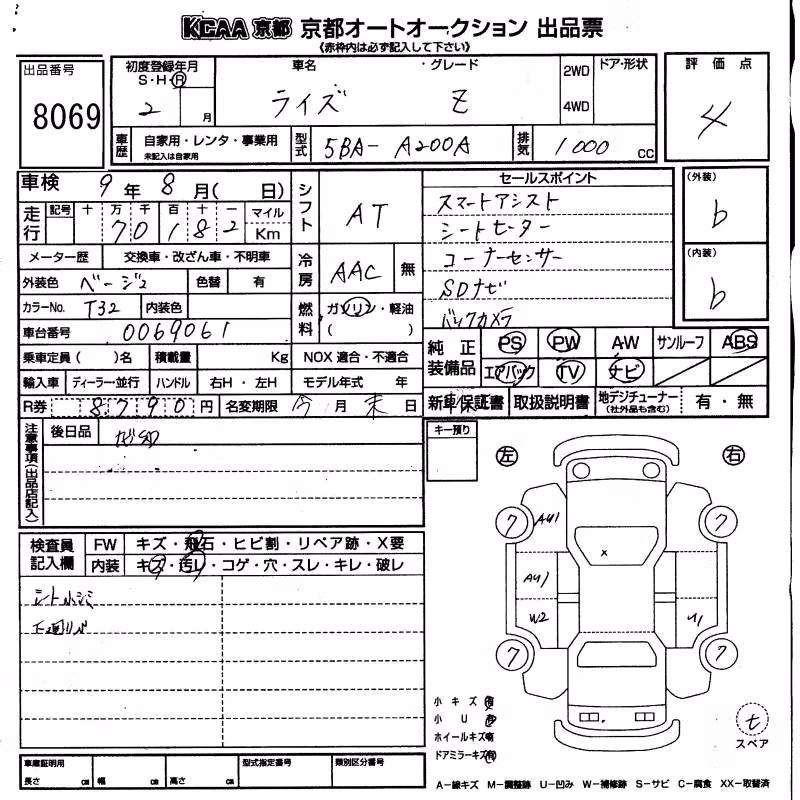 KCAA 京都 京都オートオークション 出品票
《赤枠内は必ず記入して下さい》
出品番号 8069
初度登録年月 S・H・R 2 月
車名 ・グレード ライズ Z
2WD 4WD
ドア・形状
評価点 4
車歴 自家用・レンタ・事業用 未記入は自家用
型式 5BA- A200A
排気 1000 CC
車検 9年 8月( 日)
シフト AT
セールスポイント
スマートアシスト
シートヒーター
コーナーセンサー
SDナビ
バックカメラ
(外装) b
(内装) b
走行 記号 十 万 千 百 十 一 マイル Km
70182
メーター歴 交換車・改ざん車・不明車
冷房 AAC 無
外装色 ベージュ 色替 有
カラーNo. T32 内装色
燃料 ガソリン・軽油 ( )
車台番号 0069061
乗車定員( )名 積載量 Kg NOX 適合・不適合
純正装備品 PS PW AW サンルーフ ABS
エアバック TV ナビ
輸入車 ディーラー・並行 ハンドル 右H・左H モデル年式 年
R券 8790円 名変期限 今月末日
新車保証書 取扱説明書 地デジチューナー (社外品も含む) 有・無
注意事項(出品店記入) 後日品 ナビSD
キー預り
左 右
検査員記入欄 FW キズ・飛石・ヒビ割・リペア跡・X要
内装 キズ・汚レ・コゲ・穴・スレ・キレ・破レ
7 AU1 7
x
AU1
W2 U1
7 7
小キズ 有
小U
ホイールキズ有
ドアミラーキズ有
モ スペア
車庫証明用 長さ cm 幅 cm 高さ cm
型式指定番号 類別区分番号
A-線キズ M-調整跡 U-凹み W-補修跡 S-サビ C-腐食 XX-取替済